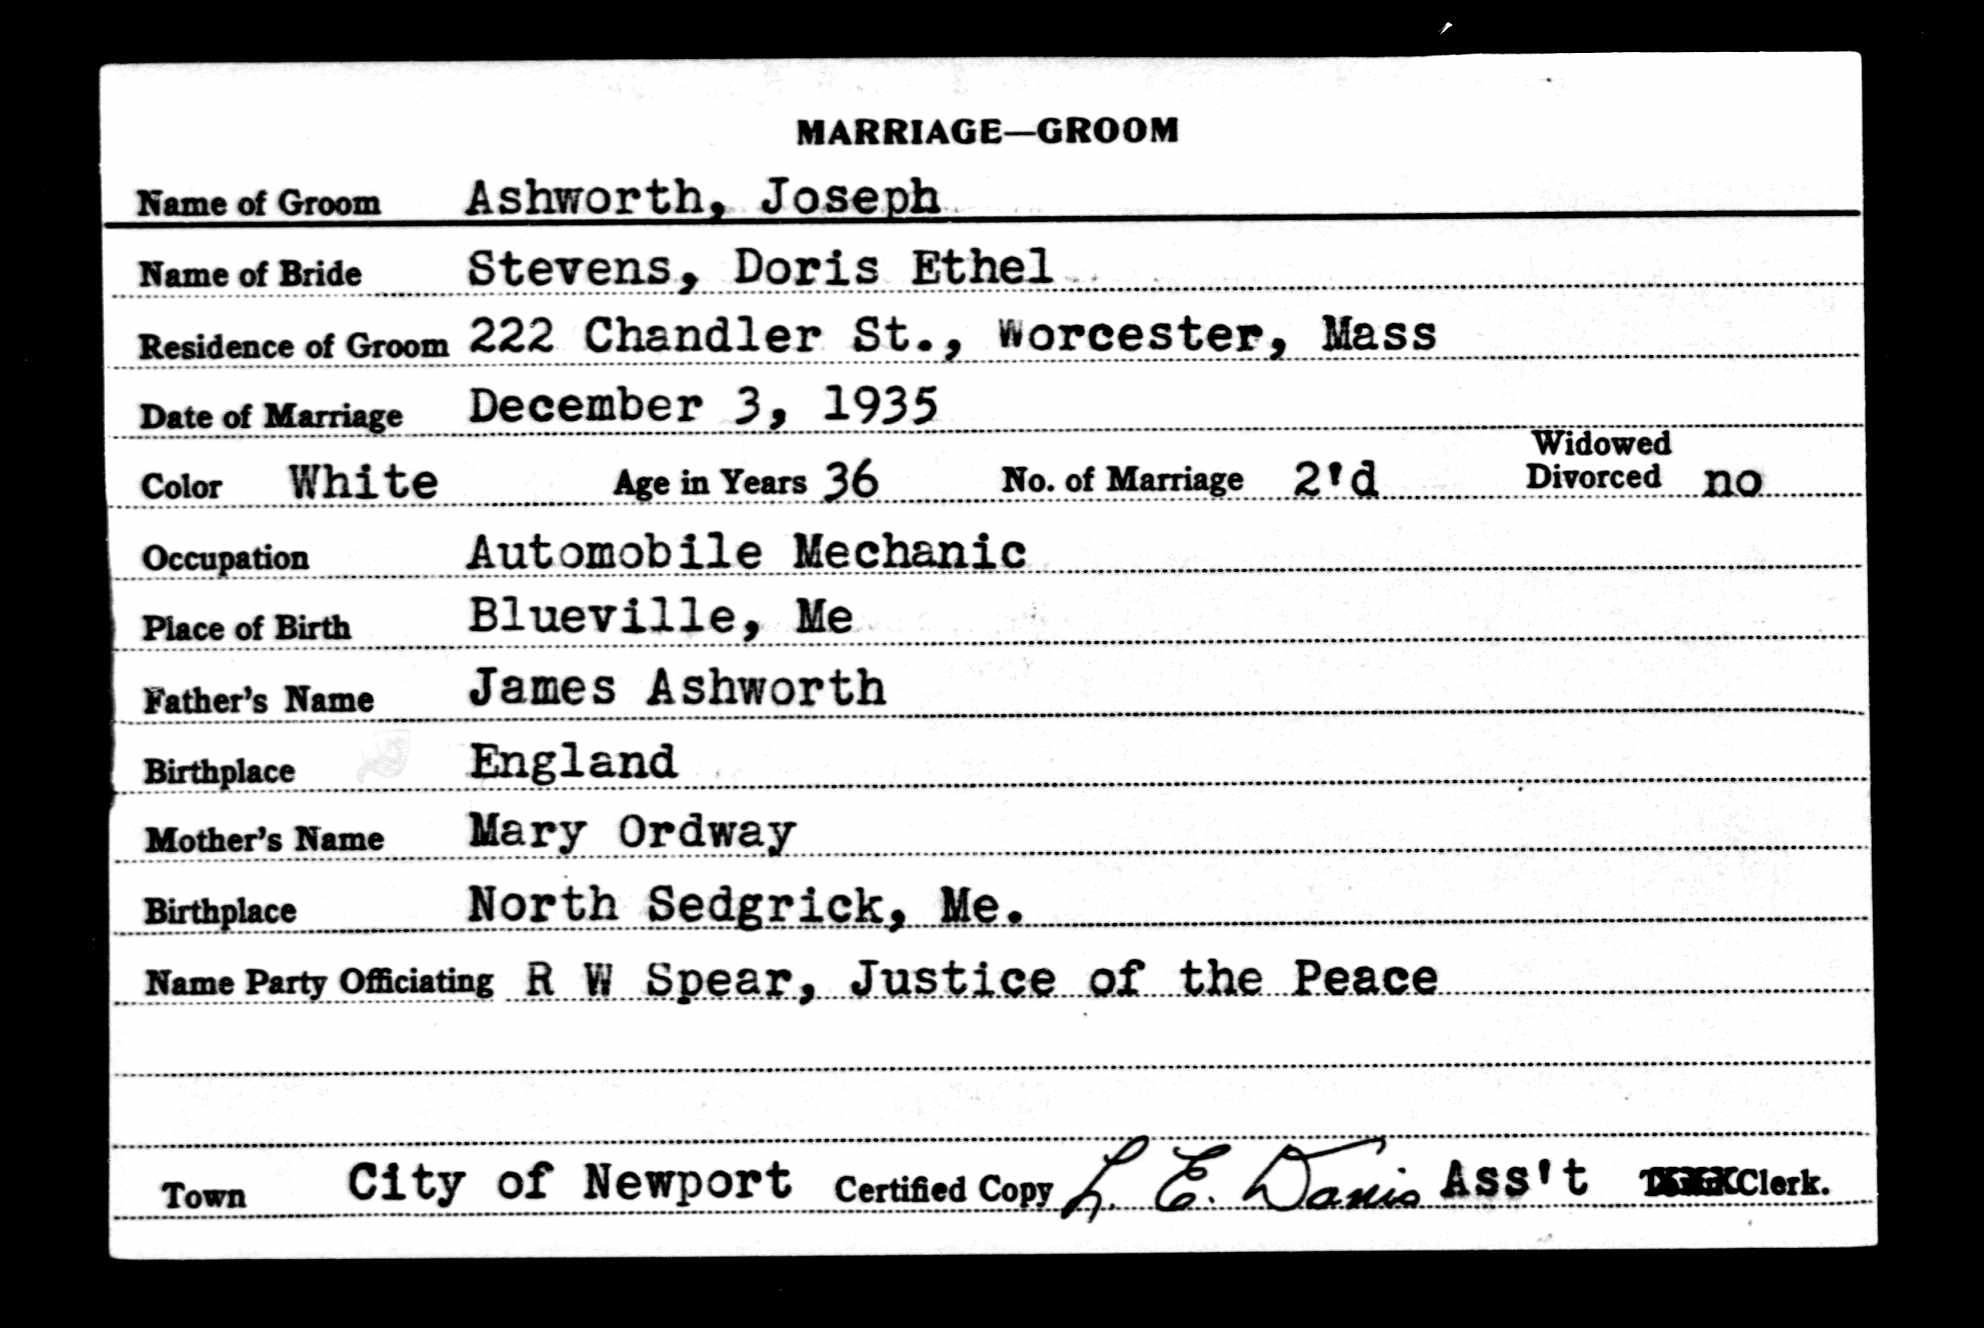 MARRIAGE—GROOM
Name of Groom Ashworth, Joseph
Name of Bride Stevens, Doris Ethel
Residence of Groom 222 Chandler St., Worcester, Mass
Date of Marriage December 3, 1935
Color White Age in Years 36 No. of Marriage 2'd Widowed Divorced no
Occupation Automobile Mechanic
Place of Birth Blueville, Me
Father's Name James Ashworth
Birthplace England
Mother's Name Mary Ordway
Birthplace North Sedgrick, Me.
Name Party Officiating R W Spear, Justice of the Peace
Town City of Newport Certified Copy L. E. Davis Ass't Clerk.